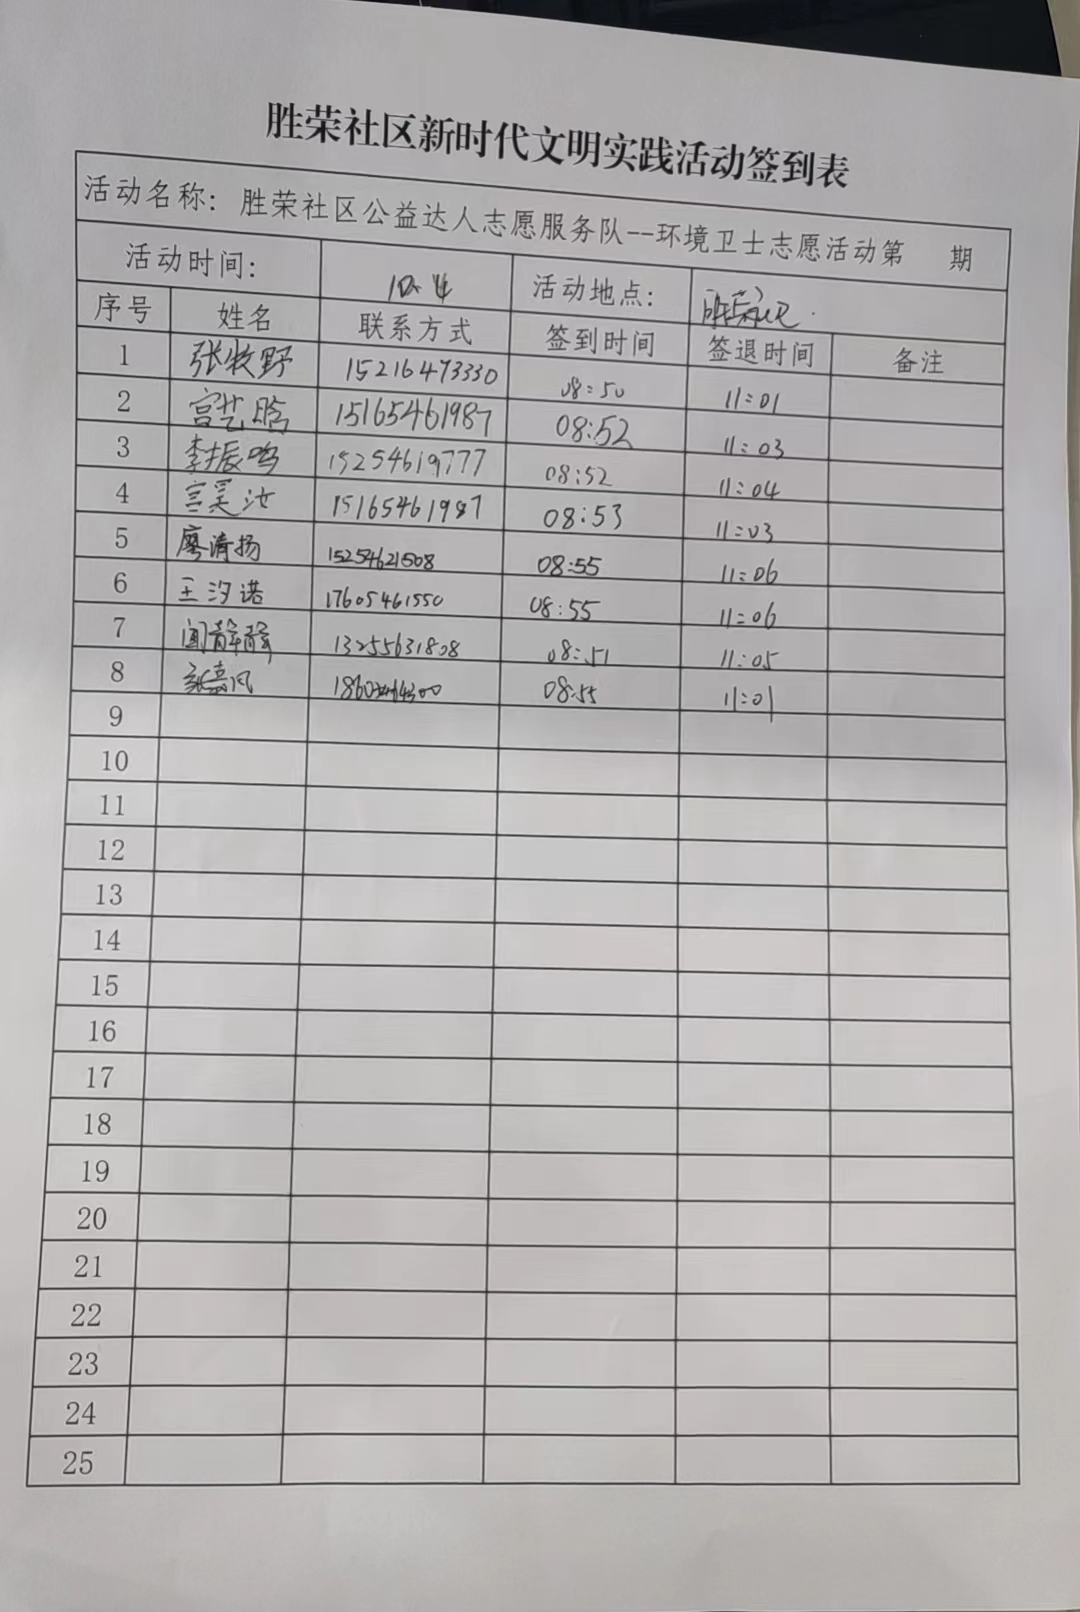 胜荣社区新时代文明实践活动签到表
活动名称：胜荣社区公益达人志愿服务队--环境卫士志愿活动第 期
活动时间： 12.4 活动地点： 胜荣社区.
序号 姓名 联系方式 签到时间 签退时间 备注
1 张牧野 15216473330 08:50 11:01
2 宫艺晗 15165461987 08:52 11:03
3 李振鸣 15254619777 08:52 11:04
4 宫昊汝 15165461987 08:53 11:03
5 廖清扬 15254621508 08:55 11:06
6 王汐诺 17605461550 08:55 11:06
7 闻静静 13255631808 08:51 11:05
8 08:55 11:01
9
10
11
12
13
14
15
16
17
18
19
20
21
22
23
24
25